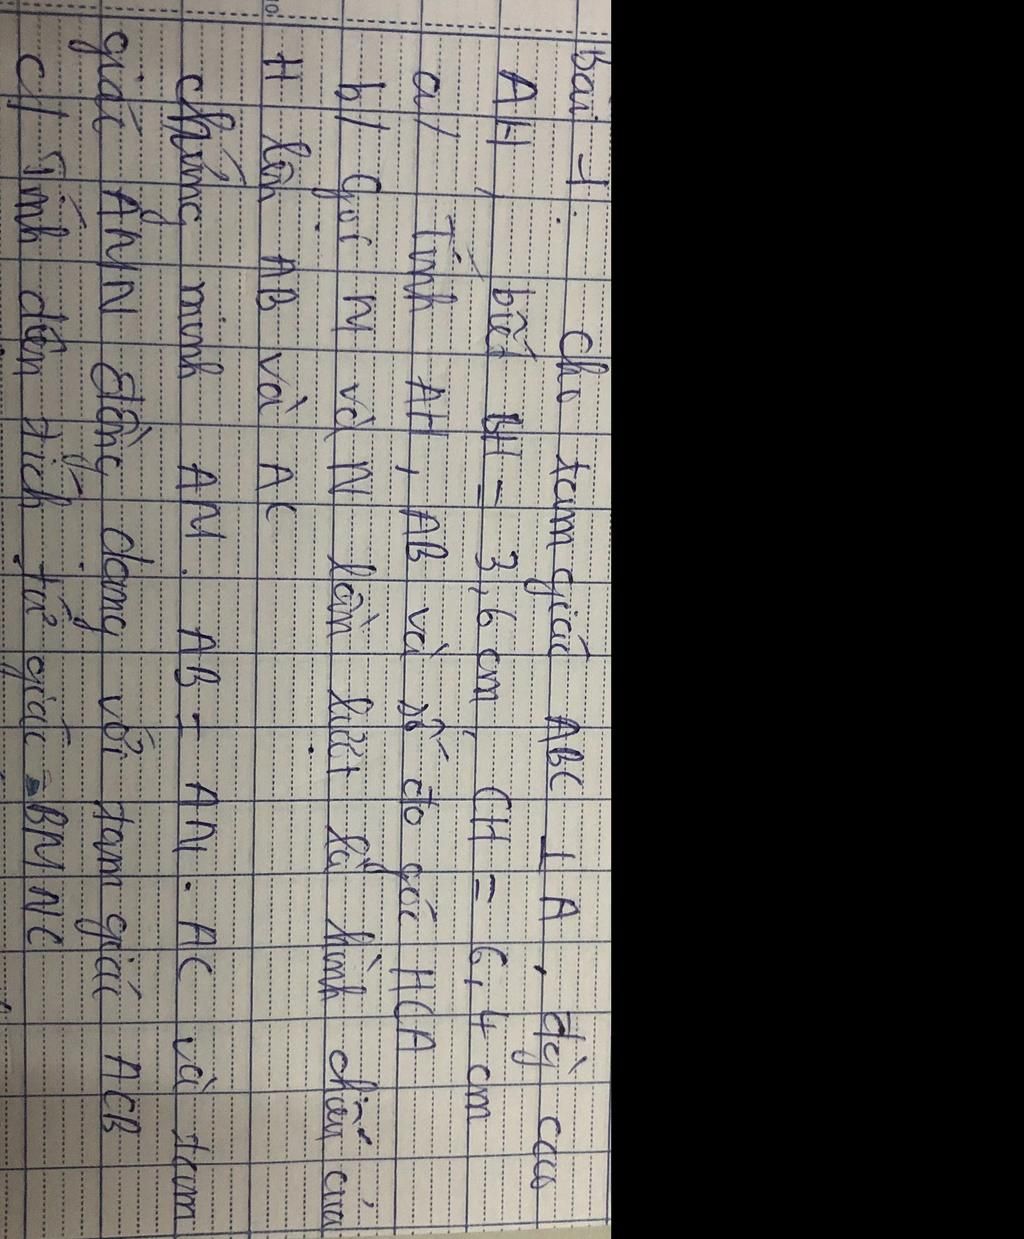 Bài 1 : Cho tam giác ABC ⊥ A, đg cao
AH, biết BH = 3,6 cm, CH = 6,4 cm
a/ Tính AH, AB và số đo góc HCA
b/ Gọi M và N lần lượt là hình chiếu của
H lên AB và AC
chứng minh AM. AB = AN. AC và tam
giác AMN đồng dạng với tam giác ACB
c/ Tính diện tích tứ giác BMNC